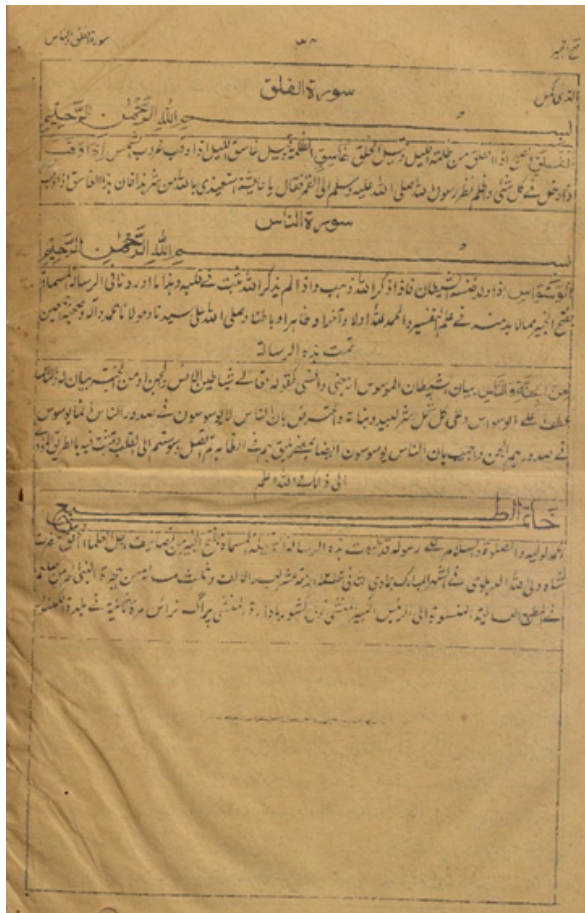 فتح الخبير ٣٨ سورة الفلق والناس
الذى يمكن
سورة الفلق
بسم الله الرحمن الرحيم
الفلق الصبح اذا انفلق من ظلمة الليل وقيل الخلق غاسق الظلمة وقيل غاسق الليل اذا وقب غروب الشمس اذا وقب
اذا دخل فى كل شئ واظلم نظر رسول الله صلى الله عليه وسلم الى القمر فقال يا عائشة استعيذى بالله من شر هذا فان هذا الغاسق اذا وقب
سورة الناس
بسم الله الرحمن الرحيم
الوسواس اذا ولد خنسه الشيطان فاذا ذكر الله ذهب واذا لم يذكر الله ثبت فى قلبه وهذا ما اوردنا فى الرسالة المسماة
بفتح الخبير مما لا بد منه فى علم التفسير والحمد لله اولا وآخرا وظاهرا وباطنا وصلى الله على سيدنا ومولانا محمد وآله وصحبه اجمعين
تمت هذه الرسالة
من الجنة والناس بيان الشيطان الموسوس انه جنى وانسى كقوله تعالى شياطين الانس والجن او من الجنة بيان له والناس
عطف على الوسواس وعلى كل شمل شر لبيد وبناته واعترض بان الناس لا يوسوسون فى صدور الناس انما يوسوس
فى صدورهم الجن واجيب بان الناس يوسوسون ايضا بمعنى يليق بهم فى الظاهر ثم تصل وسوستهم الى القلب وتثبت فيه بالطريق المؤدى
الى ذلك والله اعلم
خاتمة الطبع
الحمد لوليه والصلوة والسلام على رسوله قد طبعت هذه الرسالة المسماة بفتح الخبير من تصانيف
شاه ولى الله الدهلوى فى الشهر المبارك جمادى الثانى بعد الالف وثلث مائة من هجرة النبى
فى المطبع العالية المنسوبة الى الرئيس الكبير المنشى نولكشور بادارة المنشى پراگ نرائن مرة ثانية فى بلدة لكهنؤ